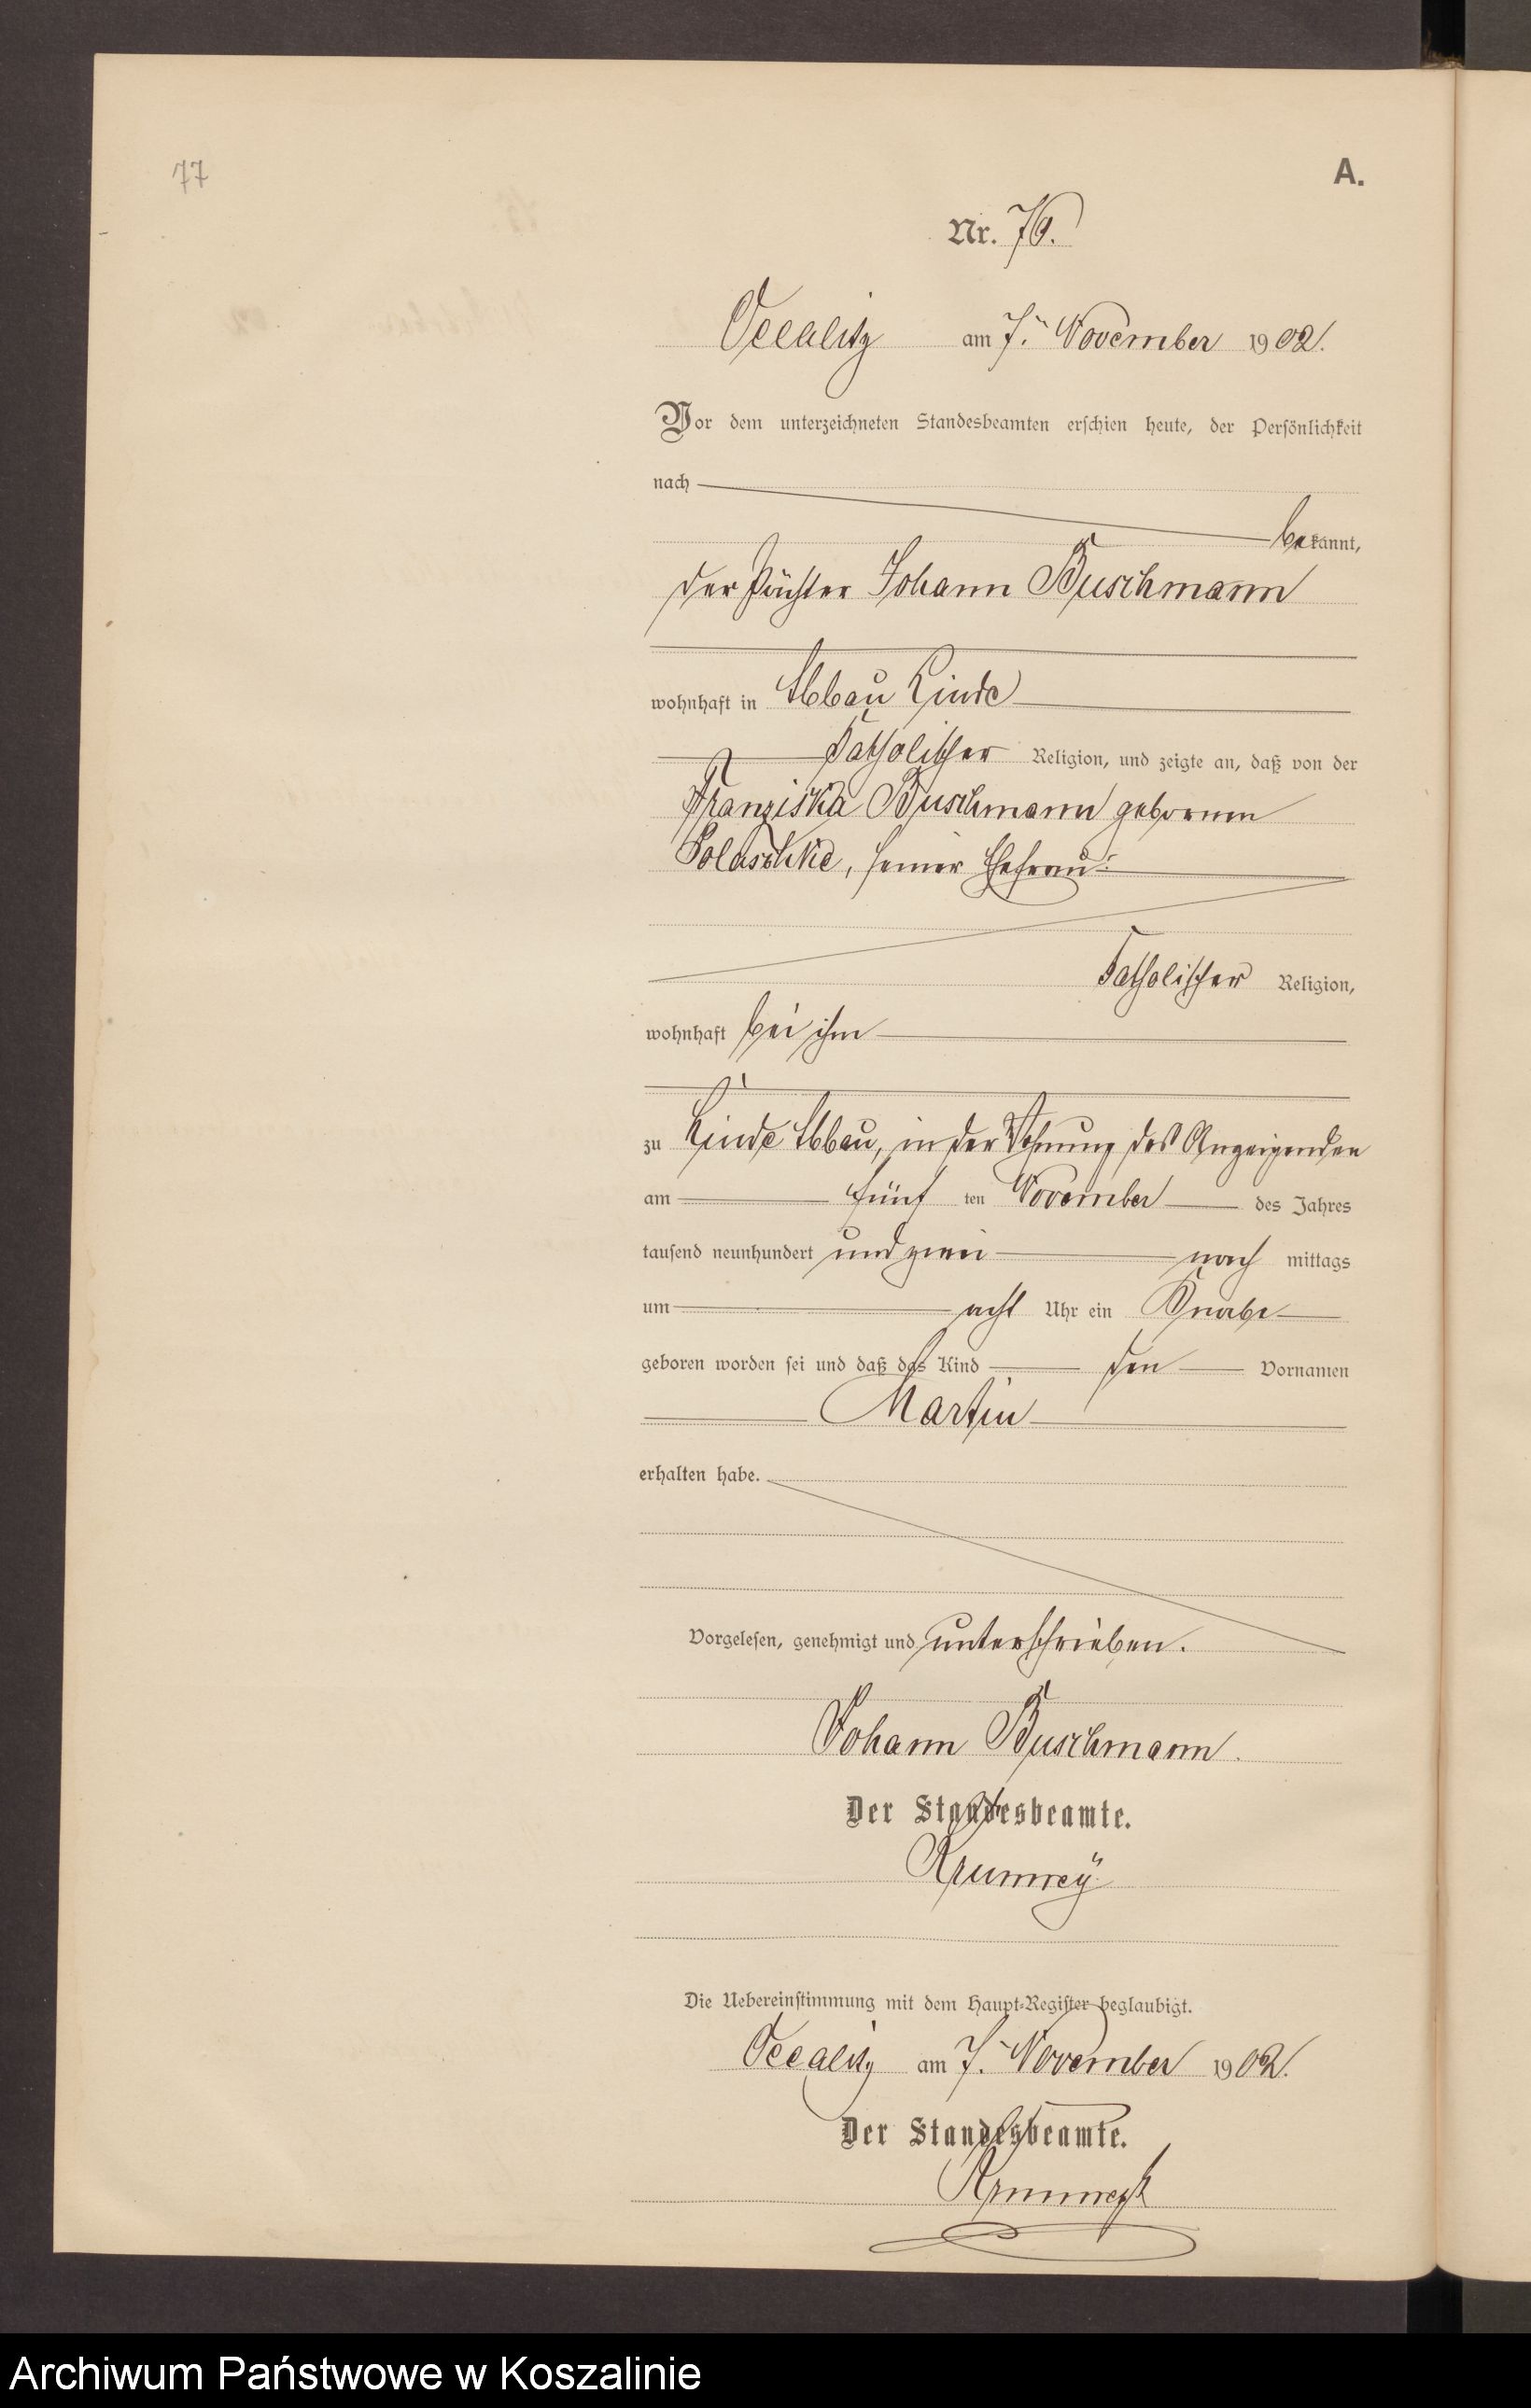 77
A.
Nr. 76.
Occalitz am 7. November 1902.
Vor dem unterzeichneten Standesbeamten erschien heute, der Persönlichkeit
nach
bekannt,
der Pächter Johann Buschmann
wohnhaft in Abbau Linde
katholischer Religion, und zeigte an, daß von der
Franziska Buschmann geborenen
Polaschke, seiner Ehefrau
katholischer Religion,
wohnhaft bei ihm
zu Linde Abbau, in der Wohnung des Anzeigenden
am fünf ten November des Jahres
tausend neunhundert und zwei nach mittags
um acht Uhr ein Knabe
geboren worden sei und daß das Kind den Vornamen
Martin
erhalten habe.
Vorgelesen, genehmigt und unterschrieben.
Johann Buschmann.
Der Standesbeamte.
Die Uebereinstimmung mit dem Haupt-Register beglaubigt.
Occalitz am 7. November 1902.
Der Standesbeamte.
Archiwum Państwowe w Koszalinie